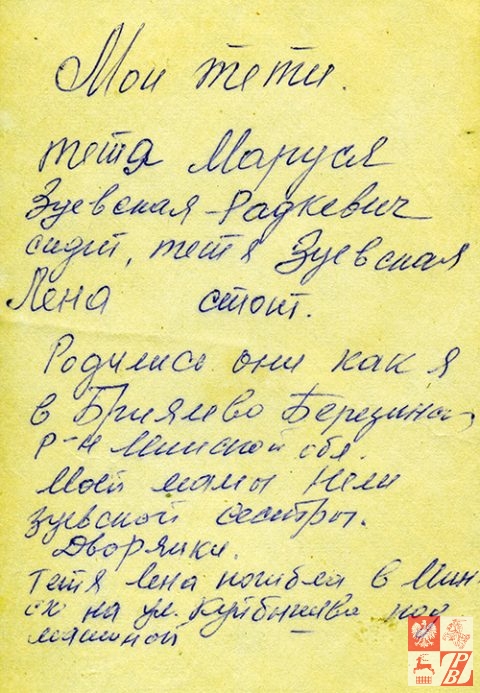 Мои тети.
тетя Маруся
Зуевская-Радкевич
сидит, тетя Зуевская
Лена стоит.
Родились они как я
в Бриялево Березинс,
р-н Минской обл.
Моей мамы Нели
Зуевской сестры.
Дворянки.
тетя Лена погибла в Мин-
ске на ул. Куйбышева под
машиной
PBL